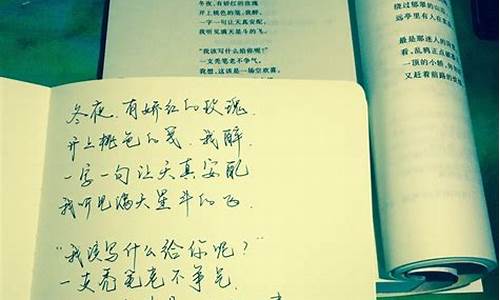 冬夜,有娇红的玫瑰
开上桃色的笺,我醉,
一字一句让天真安配,
我听见满天星斗的飞。
“我该写什么给你呢?”
一支秃笔老不争气。
我想,这该是一场空欢喜。
绕过郁翠的山
远亭里有人在
最是那迷人的
看,乱鸦正点破
一顶的小轿,
又赶着前路的
冬夜,有娇红的玫瑰.
开上桃色的笺.我醉.
一字一句让天真安配
我听见满天星斗的飞.
“我该写什么给你呢?”
一支秃笔老不争气.